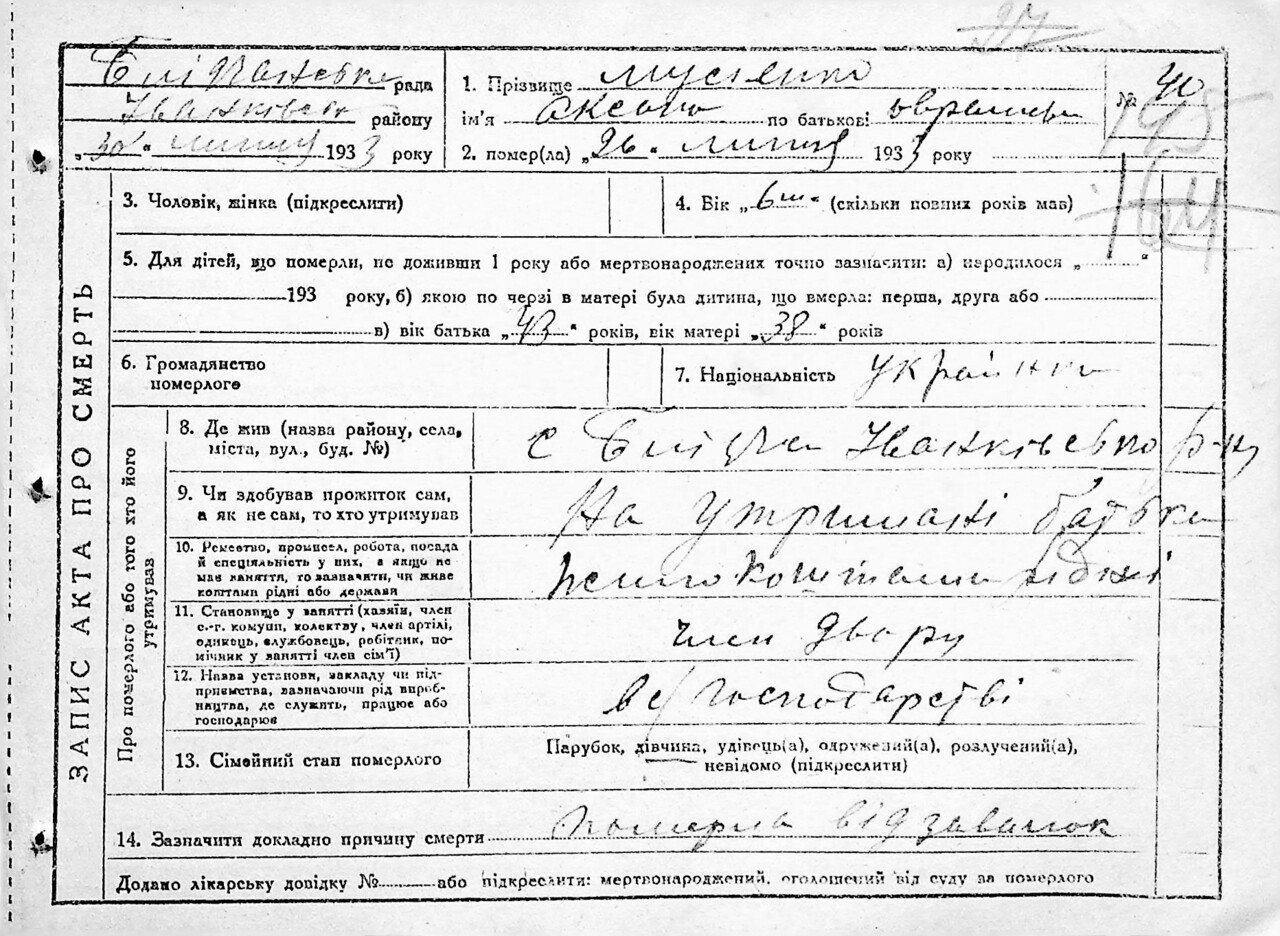 рада 1. Прізвище Мусієнко № 40
Іванківськ району ім'я Аксана по батькові
„30“ липня 1933 року 2. помер(ла) „26“ липня 1933 року
145
164
ЗАПИС АКТА ПРО СМЕРТЬ
3. Чоловік, жінка (підкреслити) 4. Вік „6“ (скільки повних рохів мав)
5. Для дітей, що померли, не доживши 1 року або мертвонароджених точно зазначити: а) народилося „ “
193 року, б) якою по черзі в матері була дитина, що вмерла: перша, друга або
в) вік батька „43“ років, вік матері „38“ років
6. Громадянство
померлого
7. Національність українка
Про померлого або того хто його
утримував
8. Де жив (назва району, села,
міста, вул., буд. №)
с Іванківсько р-ну
9. Чи здобував прожиток сам,
а як не сам, то хто утримував
На утримані батька
10. Ремество, промисел, робота, посада
й спеціяльність у них, а якщо не
має заняття, то зазначити, чи живе
коштами рідні або держави
коштами рідні
11. Становище у занятті (хазяїн, член
с.-г. комуни, колективу, член артілі,
одинець, службовець, робітник, по-
мічник у занятті член сім'ї)
член двору
12. Назва установи, закладу чи під-
приємства, зазначаючи рід вироб-
ництва, де служить, працює або
господарює
в с/господарстві
13. Сімейний стан померлого
Парубок, дівчина, удівець(а), одружений(а), розлучений(а),
невідомо (підкреслити)
14. Зазначити докладно причину смерти померла від
Додано лікарську довідку № або підкреслити: мертвонароджений, оголошений від суду за померлого